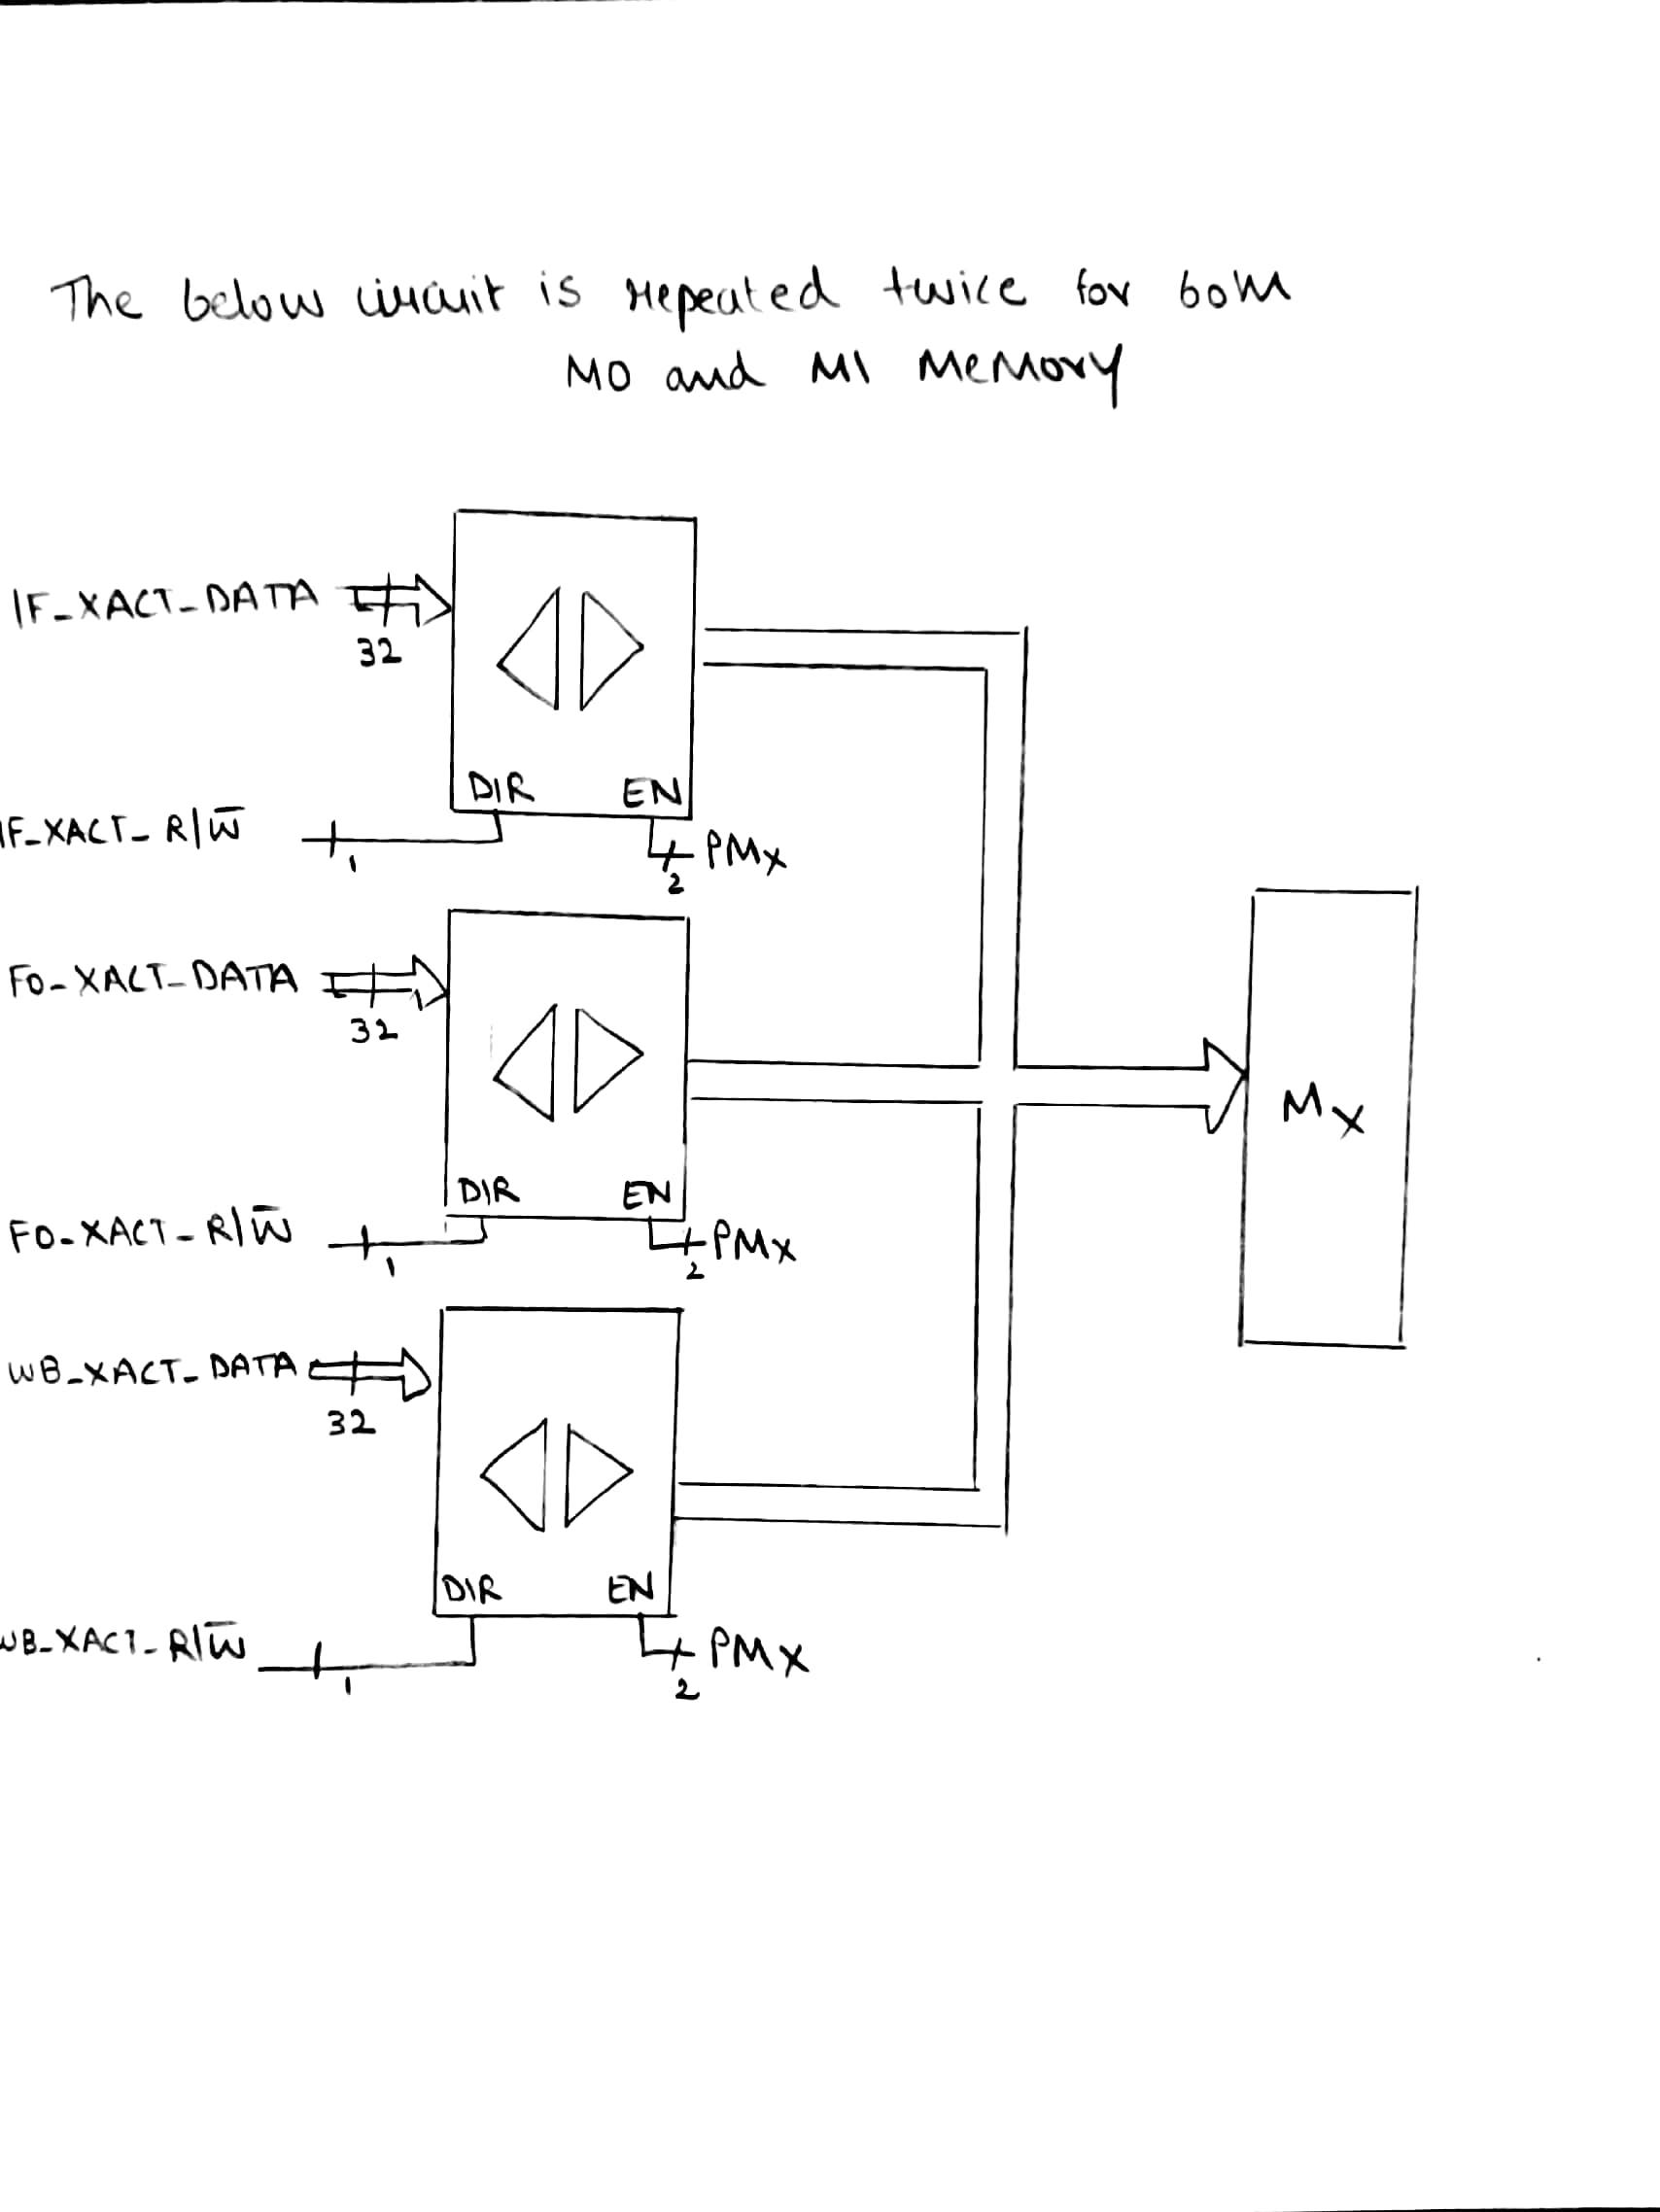 The below circuit is repeated twice for both
M0 and M1 Memory
IF_XACT_DATA
32
DIR EN
IF_XACT_R/W̅
1
PMX
2
FO_XACT_DATA
32
DIR EN
FO_XACT_R/W̅
1
PMX
2
MX
WB_XACT_DATA
32
DIR EN
WB_XACT_R/W̅
1
PMX
2